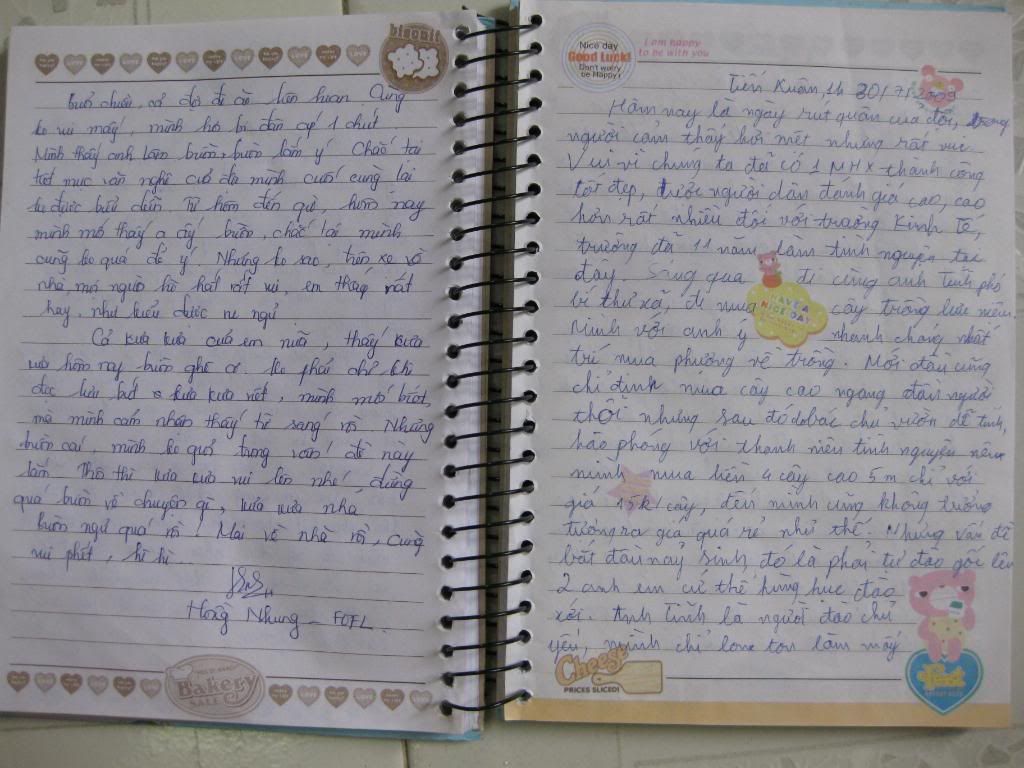 biscuit
Buổi chiều, cả đội đi ăn liên hoan. Cũng
ko vui mấy, mình hơi bị đần cứ 1 chút
Mình thấy anh Lâm buồn, buồn lắm ý. Chắc tại
tiết mục văn nghệ của đội mình cuối cùng lại
ko được biểu diễn. Từ hôm đến giờ, hôm nay
mình mới thấy a ấy buồn, chắc tại mình
cũng ko quá để ý. Nhưng ko sao, trên xe về
nhà mọi người hò hát rất vui, em thấy rất
hay, như kiểu được ru ngủ
Cả kưa kưa của em nữa, thấy kưa
kưa hôm nay buồn ghê cơ. Ko phải chỉ khi
đọc lưu bút kưa kưa viết, mình mới biết,
mà mình cảm nhận thấy từ sáng rồi. Nhưng
buồn cái, mình ko giỏi trong vấn đề này
lắm. Thôi thì kưa kưa vui lên nhé, đừng
quá buồn về chuyện gì, kưa kưa nha
buồn ngủ quá rồi. Mai về nhà rồi, cũng
vui phết, hì hì
Hồng Nhung - FOFL.
Bakery
SALE
Nice day
Good Luck!
Don't worry
be Happy!
I am happy
to be with you
Tiến Xuân, 30/7/2009
Hôm nay là ngày rút quân của đội, trong
người cảm thấy hơi mệt nhưng rất vui.
Vui vì chúng ta đã có 1 MHX thành công
tốt đẹp, được người dân đánh giá cao, cao
hơn rất nhiều đối với trường Kinh Tế,
trường đã 11 năm làm tình nguyện tại
đây. Sáng qua đi cùng anh Tĩnh phó
bí thư xã, đi mua cây trồng lưu niệm.
Mình với anh ý nhanh chóng nhất
trí mua phượng về trồng. Mới đầu cũng
chỉ định mua cây cao ngang đầu người
thôi nhưng sau đó do bác chủ vườn dễ tính,
hào phóng với thanh niên tình nguyện nên
mình mua liền 4 cây cao 5m chỉ với
giá 15k/cây, đến mình cũng không tưởng
tượng ra giá quá rẻ như thế. Nhưng vấn đề
bắt đầu nảy sinh, đó là phải tự đào gốc lên
2 anh em cứ thế hùng hục đào
xới. Anh Tĩnh là người đào chủ
yếu, mình chỉ lon ton làm mấy
HAVE A
NICE DAY
Cheese
PRICES SLICED!